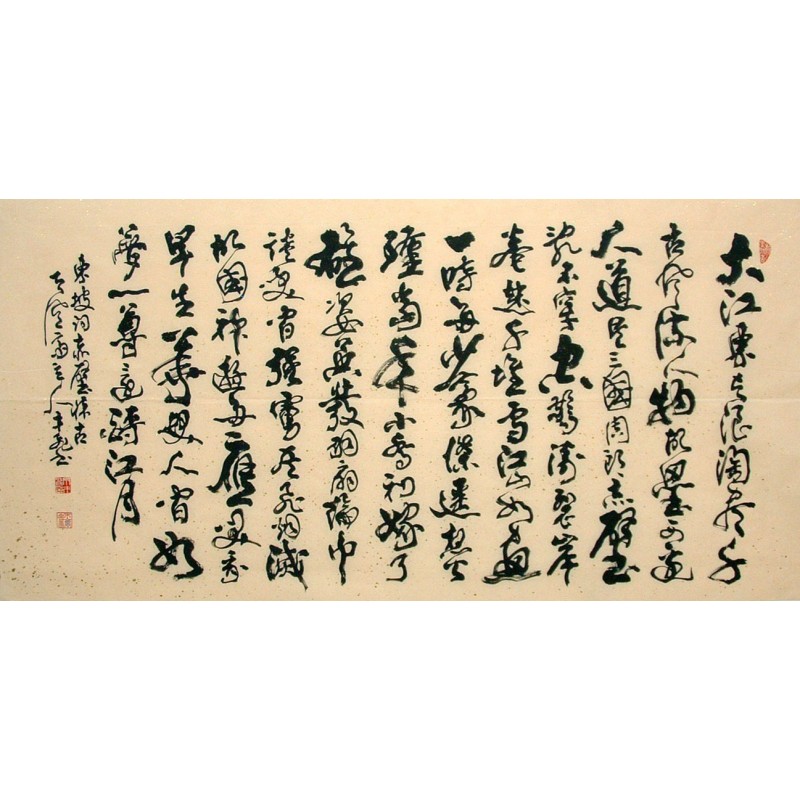 大江東去浪淘盡千
古風流人物故壘西邊
人道是三國周郎赤壁
亂石穿空驚濤裂岸
卷起千堆雪江山如畫
一時多少豪傑遙想公
瑾當年小喬初嫁了
雄姿英發羽扇綸巾
談笑間強虜灰飛烟滅
故國神遊多應笑我
早生華髮人間如
夢一尊還酹江月
東坡詞赤壁懷古